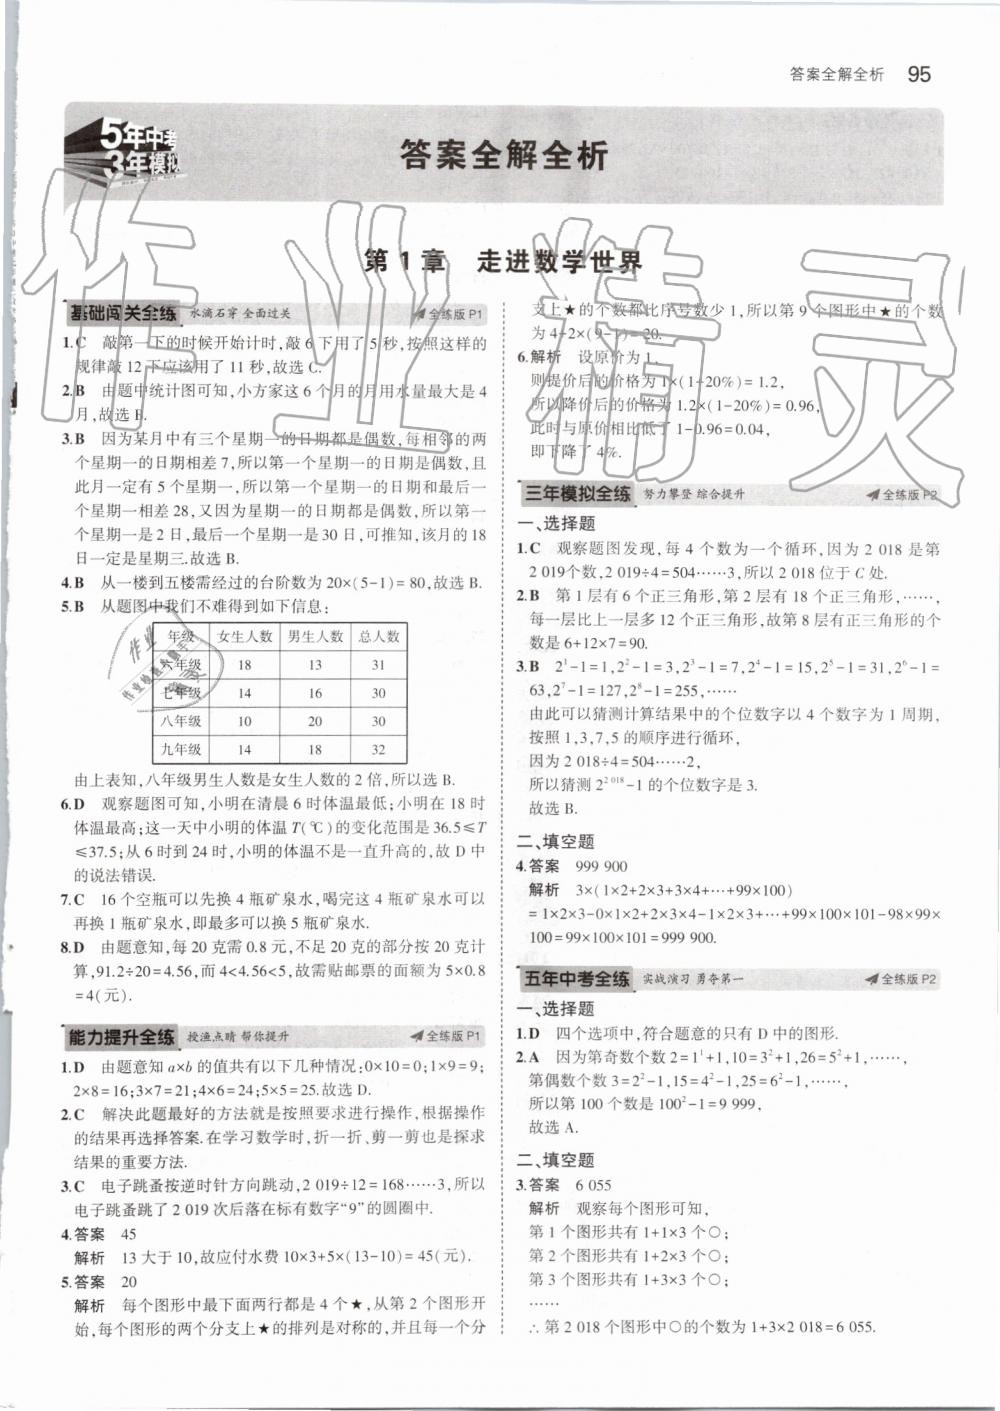 答案全解全析 95
5年中考
3年模拟
答案全解全析
第1章 走进数学世界
基础闯关全练 水滴石穿 全面过关 全练版P1
1.C 敲第一下的时候开始计时,敲6下用了5秒,按照这样的
规律敲12下应该用了11秒,故选C.
2.B 由题中统计图可知,小方家这6个月的月用水量最大是4
月,故选B.
3.B 因为某月中有三个星期一的日期都是偶数,每相邻的两
个星期一的日期相差7,所以第一个星期一的日期是偶数,且
此月一定有5个星期一,所以第一个星期一的日期和最后一
个星期一相差28,又因为星期一的日期都是偶数,所以第一
个星期一是2日,最后一个星期一是30日,可推知,该月的18
日一定是星期三.故选B.
4.B 从一楼到五楼需经过的台阶数为20×(5-1)=80,故选B.
5.B 从题图中我们不难得到如下信息:
年级 女生人数 男生人数 总人数
六年级 18 13 31
七年级 14 16 30
八年级 10 20 30
九年级 14 18 32
由上表知,八年级男生人数是女生人数的2倍,所以选B.
6.D 观察题图可知,小明在清晨6时体温最低;小明在18时
体温最高;这一天中小明的体温T(℃)的变化范围是36.5≤T
≤37.5;从6时到24时,小明的体温不是一直升高的,故D中
的说法错误.
7.C 16个空瓶可以先换4瓶矿泉水,喝完这4瓶矿泉水可以
再换1瓶矿泉水,即最多可以换5瓶矿泉水.
8.D 由题意知,每20克需0.8元,不足20克的部分按20克计
算,91.2÷20=4.56,而4<4.56<5,故需贴邮票的面额为5×0.8
=4(元).
能力提升全练 授渔点睛 帮你提升 全练版P1
1.D 由题意知a×b的值共有以下几种情况:0×10=0;1×9=9;
2×8=16;3×7=21;4×6=24;5×5=25.故选D.
2.C 解决此题最好的方法就是按照要求进行操作,根据操作
的结果再选择答案.在学习数学时,折一折、剪一剪也是探求
结果的重要方法.
3.C 电子跳蚤按逆时针方向跳动,2 019÷12=168……3,所以
电子跳蚤跳了2 019次后落在标有数字“9”的圆圈中.
4.答案 45
解析 13大于10,故应付水费10×3+5×(13-10)=45(元).
5.答案 20
解析 每个图形中最下面两行都是4个★,从第2个图形开
始,每个图形的两个分支上★的排列是对称的,并且每一个分
支上★的个数都比序号数少1,所以第9个图形中★的个数
为4+2×(9-1)=20.
6.解析 设原价为1,
则提价后的价格为1×(1+20%)=1.2,
所以降价后的价格为1.2×(1-20%)=0.96,
此时与原价相比低了1-0.96=0.04,
即下降了4%.
三年模拟全练 努力攀登 综合提升 全练版P2
一、选择题
1.C 观察题图发现,每4个数为一个循环,因为2 018是第
2 019个数,2 019÷4=504……3,所以2 018位于C处.
2.B 第1层有6个正三角形,第2层有18个正三角形,……,
每一层比上一层多12个正三角形,故第8层有正三角形的个
数是6+12×7=90.
3.B 2¹-1=1,2²-1=3,2³-1=7,2⁴-1=15,2⁵-1=31,2⁶-1=
63,2⁷-1=127,2⁸-1=255,……
由此可以猜测计算结果中的个位数字以4个数字为1周期,
按照1,3,7,5的顺序进行循环,
因为2 018÷4=504……2,
所以猜测2²⁰¹⁸-1的个位数字是3.
故选B.
二、填空题
4.答案 999 900
解析 3×(1×2+2×3+3×4+…+99×100)
=1×2×3-0×1×2+2×3×4-1×2×3+…+99×100×101-98×99×
100=99×100×101=999 900.
五年中考全练 实战演习 勇夺第一 全练版P2
一、选择题
1.D 四个选项中,符合题意的只有D中的图形.
2.A 因为第奇数个数2=1¹+1,10=3²+1,26=5²+1,……,
第偶数个数3=2²-1,15=4²-1,25=6²-1,……,
所以第100个数是100²-1=9 999,
故选A.
二、填空题
3.答案 6 055
解析 观察每个图形可知,
第1个图形共有1+1×3个○;
第2个图形共有1+2×3个○;
第3个图形共有1+3×3个○;
……
∴第2 018个图形中○的个数为1+3×2 018=6 055.
作业精灵